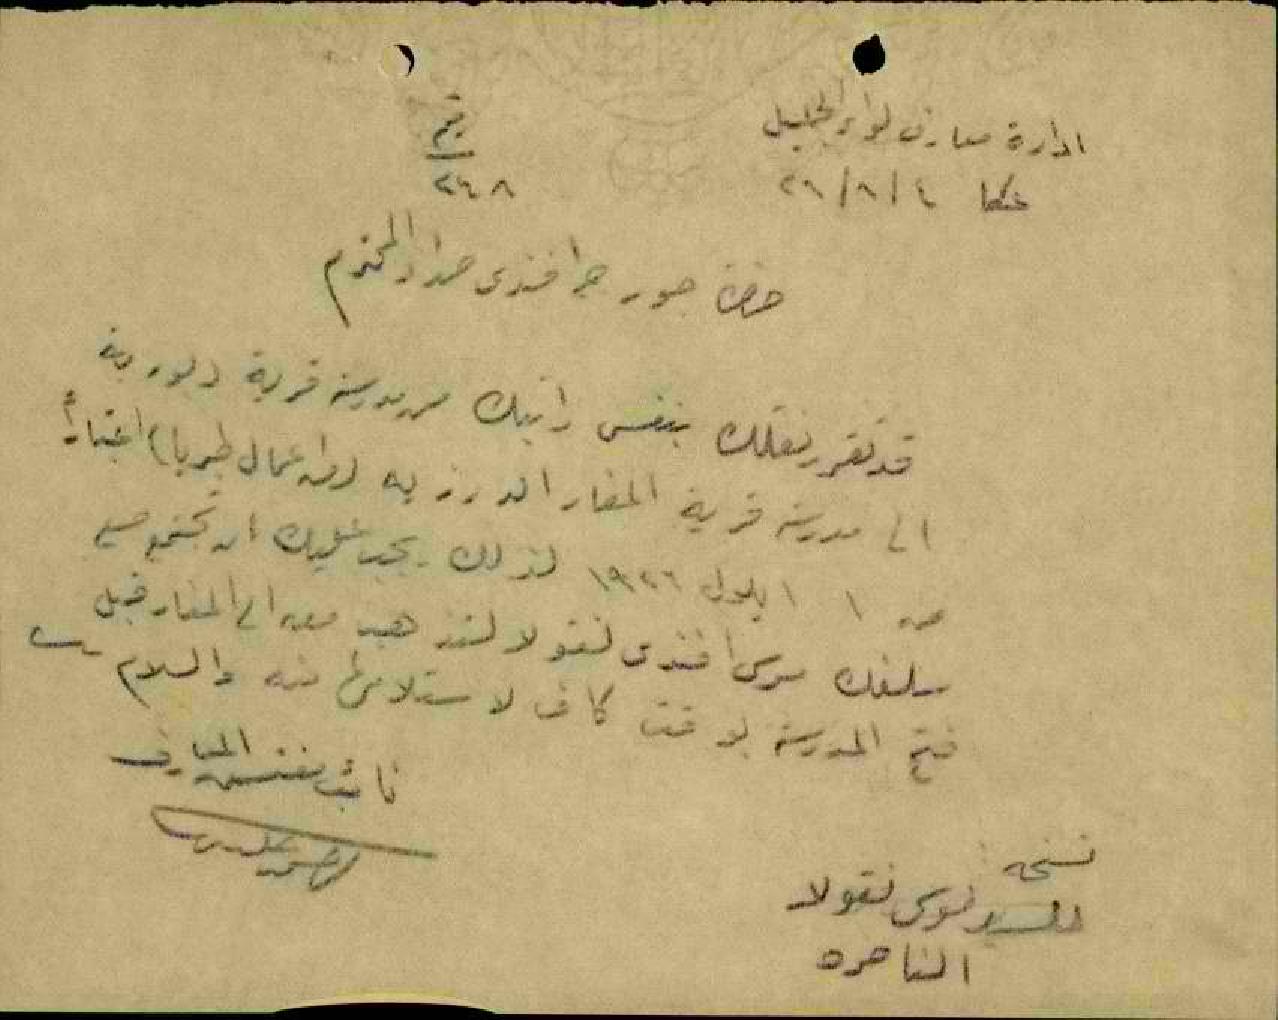 ادارة معارف لواء الجليل
عكا ٤/٨/٢٦
رقم
٢٤٠٨
حضرة جورج افندي حداد المحترم
قد تقرر نقلك بنفس راتبك من مدرسة قرية دبورية
الى مدرسة قرية المغار الدرزية (من اعمال طبريا) اعتباراً
من ١ ايلول ١٩٢٦ لذلك يجب عليك ان تجتمع مع
سلفك موسى افندي نقولا لتذهب معه الى المغار قبل
فتح المدرسة بوقت كاف لاستلامها منه والسلام
نائب مفتش المعارف
نسخة
للسيد موسى نقولا
الناصره